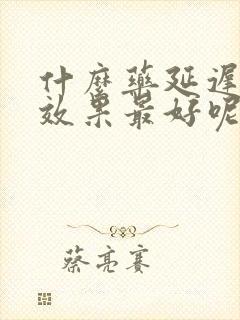 什麼藥延遲
效果最好呢
蔡亮賽